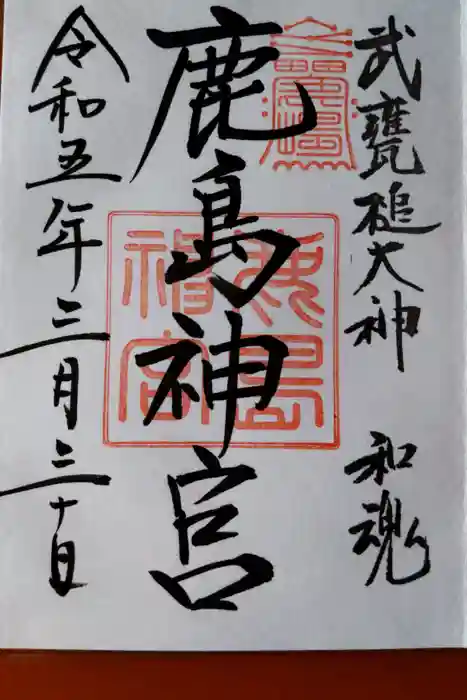 武甕槌大神 和魂
鹿島神宮
鹿島神宮
令和五年三月三十日